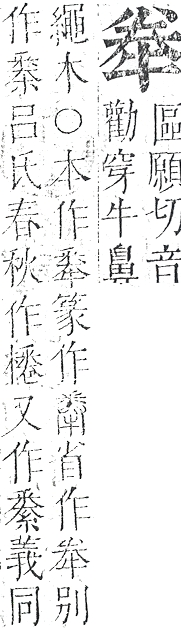 桊
區願切音
勸穿牛鼻
繩木○本作桊篆作𣓁省作桊別
作桊呂氏春秋作棬又作絭義同